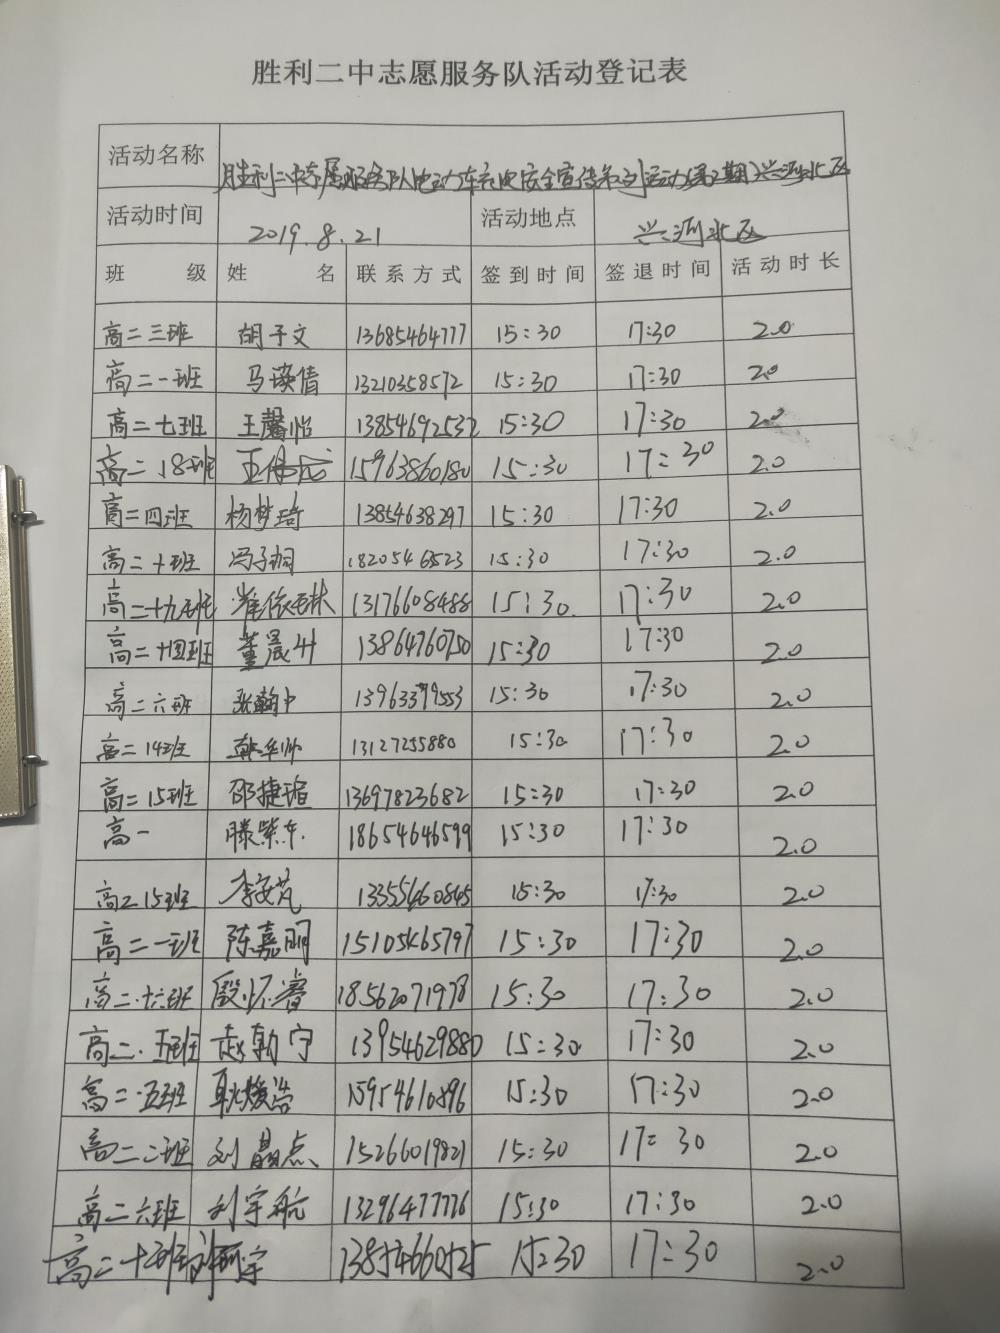 胜利二中志愿服务队活动登记表
活动名称 胜利二中专属服务队电动车充电安全宣传系列活动(第2期)兴河北区
活动时间 2019.8.21 活动地点 兴河北区
班 级 姓 名 联系方式 签到时间 签退时间 活动时长
高二三班 胡子文 13685464777 15:30 17:30 2.0
高二一班 马瑛倩 13210358572 15:30 17:30 2.0
高二七班 王馨怡 13854692532 15:30 17:30 2.0
高二18班 15963860180 15:30 17:30 2.0
高二四班 杨梦琦 13854638297 15:30 17:30 2.0
高二十班 冯子桐 15:30 17:30 2.0
高二十九班 13176608488 15:30 17:30 2.0
高二十四班 董晨叶 13864760750 15:30 17:30 2.0
高二六班 张翰中 13963399553 15:30 17:30 2.0
高二14班 韩华帅 13127255880 15:30 17:30 2.0
高二15班 邵捷瑄 13697823682 15:30 17:30 2.0
高一 滕紫东 18654646599 15:30 17:30 2.0
高二15班 李安芃 15:30 17:30 2.0
高二一班 陈嘉明 15105465797 15:30 17:30 2.0
高二·十六班 殷怀睿 18562071978 15:30 17:30 2.0
高二·五班 赵勃宁 13954629880 15:30 17:30 2.0
高二·五班 耿煖浩 15954610896 15:30 17:30 2.0
高二二班 刘晶点 15266019821 15:30 17:30 2.0
高二六班 刘宇航 13296477776 15:30 17:30 2.0
高二十班 13854660525 15:30 17:30 2.0